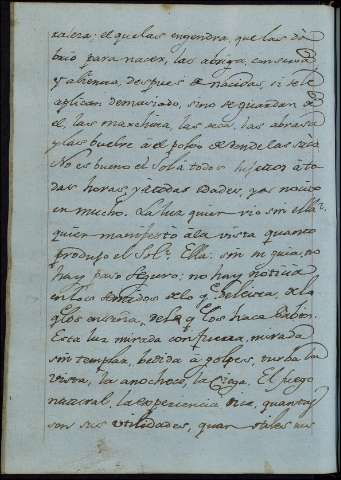 raleza: el que las engendra, que las dis
puso para nacer, las abriga, conserva
y alienta, despues de nacidas, si se le
aplican demasiado, sino se guardan de
el, las marchita, las seca, las abrasa
y las buelve al polvo de donde las saca.
No es bueno el Sol â todos sujetos â to
das horas, y â todas edades, y es nocivo
en mucho. La luz quien vio sin ella?
quien manifestò â la vista quanto
produjo el Sol? Ella: sin su guia, no
hay paso seguro: no hay noticia
en los sentidos de lo q̃ deleita, de lo
q̃ los enseña, de lo q̃ los hace sabios.
Esta luz mirada con fuerza, mirada
sin templar, bebida â golpes, turba la
vista, la anochece, la ciega. El fuego
natural, la experiencia dice, quantas
son sus utilidades, quan utiles sus